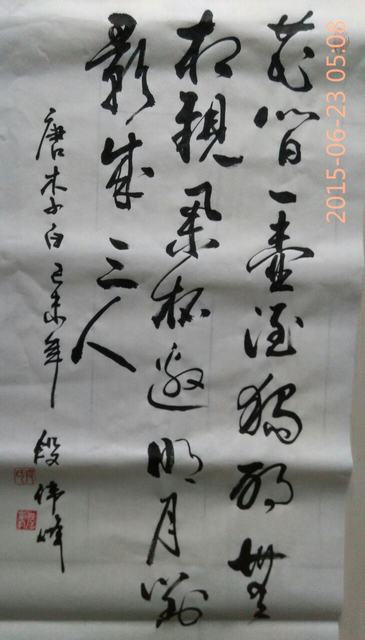 花間一壺酒獨酌無
相親舉杯邀明月對
影成三人
唐李白己未年
段伟峰
2015-06-23 05:08